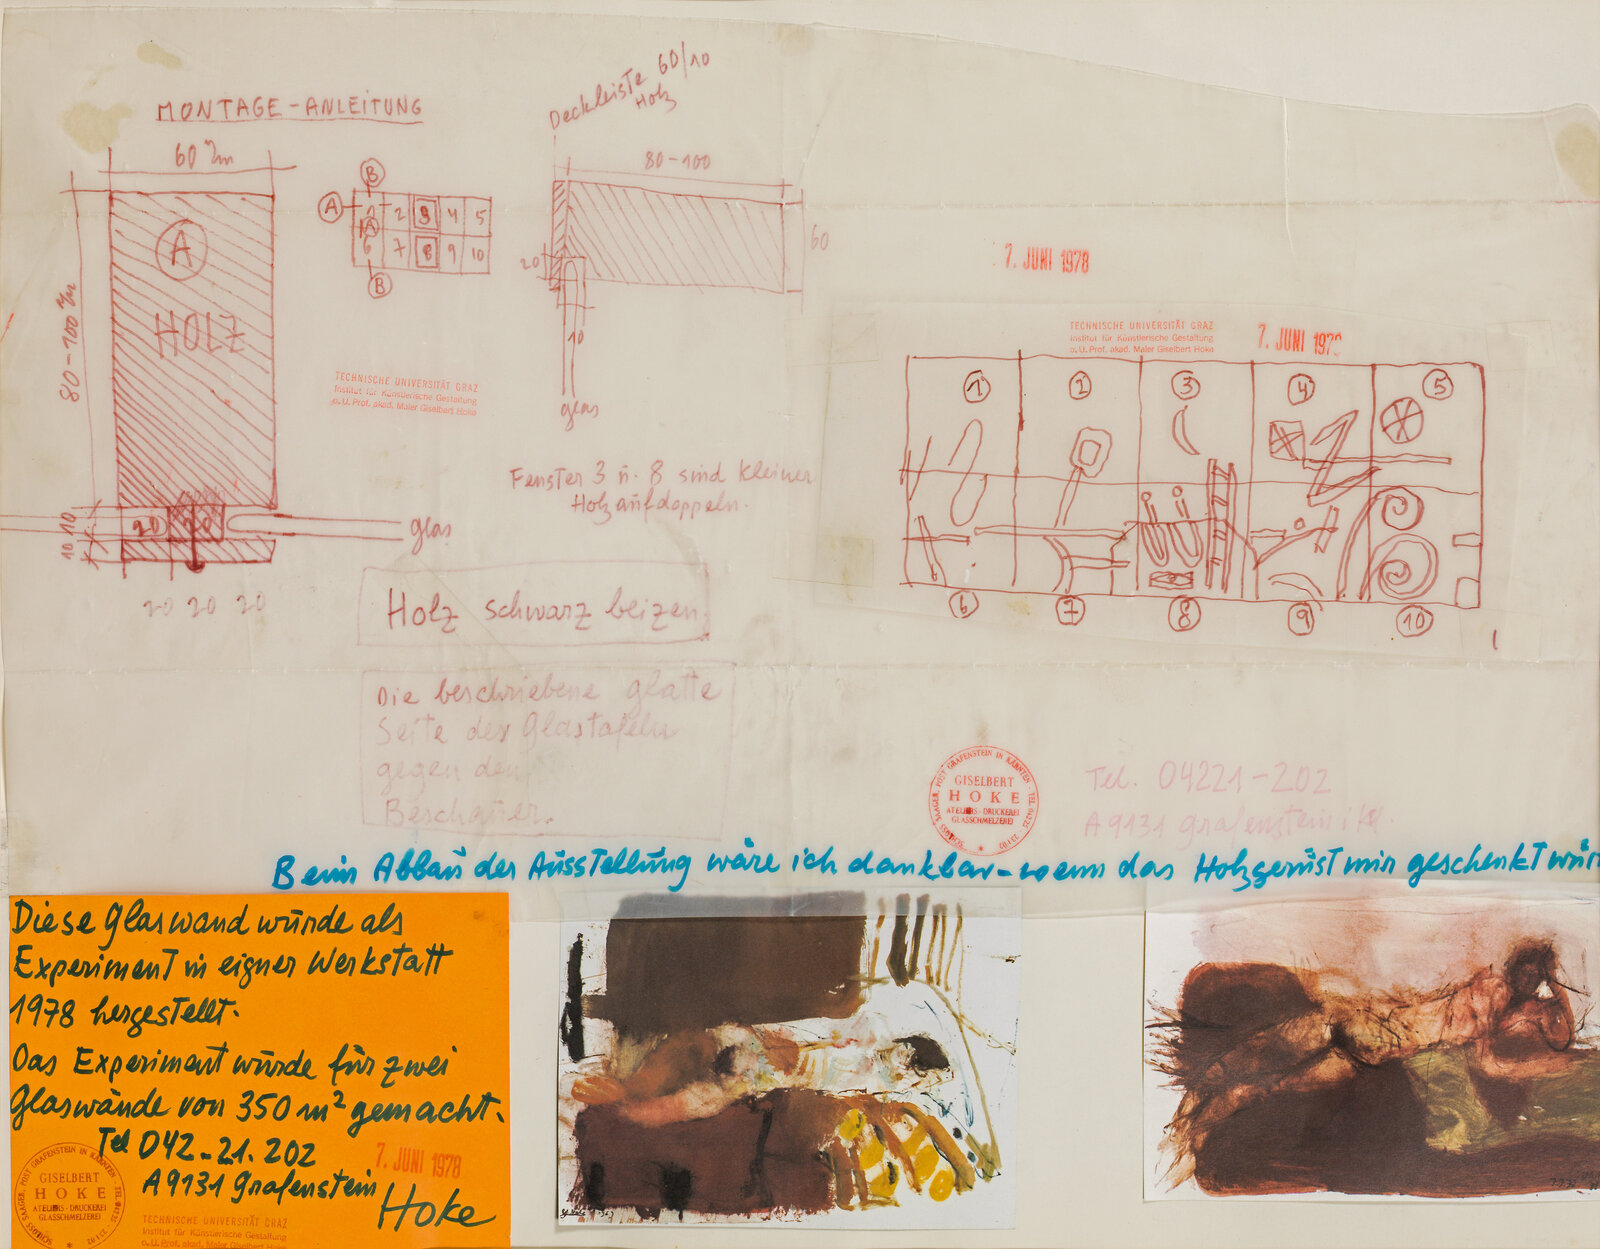 MONTAGE-ANLEITUNG
60 m/m
80-100 m/m
A
HOLZ
10 10
20 20
20 20 20
glas
B
A
1 2 3 4 5
A
6 7 8 9 10
B
Deckleiste 60/10
Holz
80-100
60
20
10
glas
TECHNISCHE UNIVERSITÄT GRAZ
Institut für Künstlerische Gestaltung
o. U. Prof. akad. Maler Giselbert Hoke
Fenster 3 u. 8 sind kleiner
Holz aufdoppeln.
Holz schwarz beizen.
Die beschriebene glatte
Seite der Glastafeln
gegen den
Beschauer.
7. JUNI 1978
TECHNISCHE UNIVERSITÄT GRAZ
Institut für Künstlerische Gestaltung
o. U. Prof. akad. Maler Giselbert Hoke
7. JUNI 1978
1 2 3 4 5
6 7 8 9 10
SCHLOSS SAAGER, POST GRAFENSTEIN IN KÄRNTEN
GISELBERT
HOKE
ATELIERS · DRUCKEREI
GLASSCHMELZEREI
Tel. 04221-202
A 9131 Grafenstein
Beim Abbau der Ausstellung wäre ich dankbar - wenn das Holzgerüst mir geschenkt wür
Diese Glaswand wurde als
Experiment in eigner Werkstatt
1978 hergestellt.
Das Experiment wurde für zwei
Glaswände von 350 m² gemacht.
Tel 042-21.202
A 9131 Grafenstein
7. JUNI 1978
Hoke
SCHLOSS SAAGER, POST GRAFENSTEIN IN KÄRNTEN
GISELBERT
HOKE
ATELIERS · DRUCKEREI
GLASSCHMELZEREI
TECHNISCHE UNIVERSITÄT GRAZ
Institut für Künstlerische Gestaltung
o. U. Prof. akad. Maler Giselbert Hoke